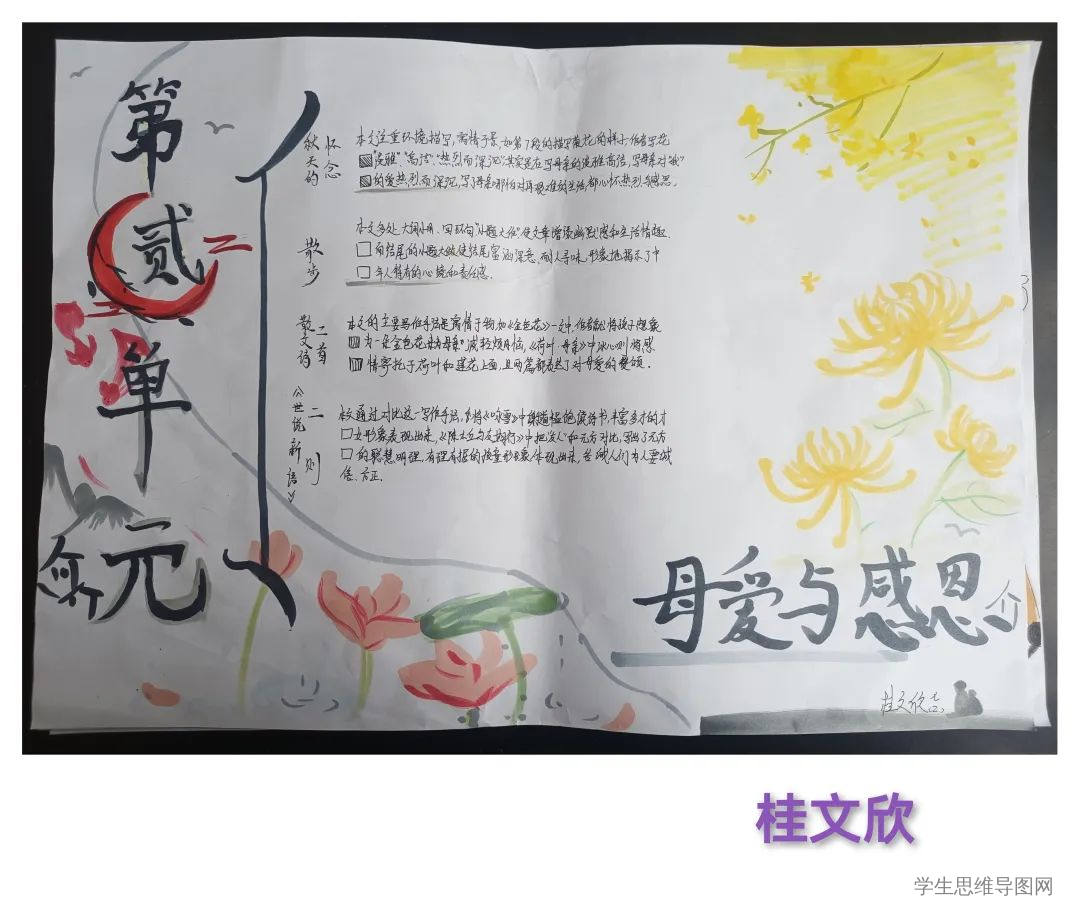 第
贰
单
元
秋天的
怀念
本文注重环境描写,寓情于景,如第7段的描写菊花的样子,作者写花
"淡雅""高洁""热烈而深沉"其实是在写母亲的淡雅高洁,写母亲对"我"
的爱热烈而深沉,写了母亲哪怕对再艰难的生活,都心怀热烈与感恩。
散步
本文多处大词小用、"小题大做"使文章增添幽默感和生活情趣
而结尾的小题大做使结尾富涵深意,耐人寻味,形象地揭示了中
年人特有的心境和责任感。
散文诗
二首
本文的主要写作手法是寓情于物,如《金色花》一文中,作者就将孩子想象
为一朵金色花为母亲减轻烦恼,《荷叶·母亲》中冰心则将感
情寄托于荷叶和莲花上面,且两篇都表达了对母爱的赞颂。
《世说新语》
二则
本文通过对比这一写作手法,将《咏雪》中谢道韫饱读诗书,丰富多才的才
女形象表现出来,《陈太丘与友期行》中把"友人"和元方对比,写出了元方
的聪慧明理、有理有据的孩童形象体现出来,告诫人们为人要诚
信、方正。
母爱与感恩
桂文欣
桂文欣
学生思维导图网